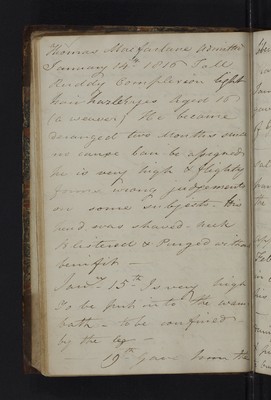 Thomas Macfarlane admitted
January 14th 1816 Tall
Ruddy Complexion light
hair hazle Eyes Aged 16
(a weaver) He became
deranged two Months since
no cause can be assigned
he is very high & flighty
forms wrong judgements
on some subjects. His
head was shaved. neck
blistered & Purged without
benefit —
Jany 15th Is very high
To be put into the warm
bath — to be confined
by the leg —
— 19th Gave him the